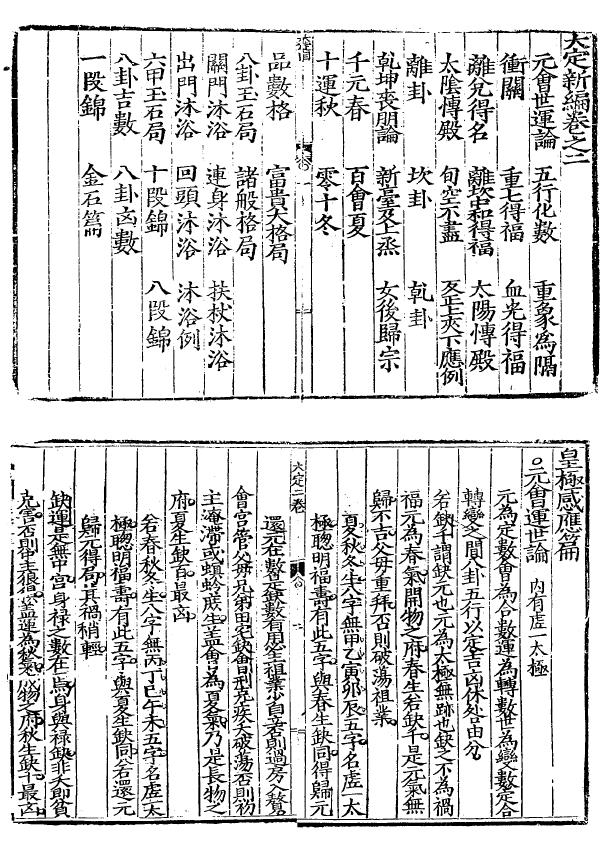 大定新編卷之二
元會世運論 五行化數 重象為隔
衝關 重七得福 血光得福
離兌得名 離坎中和得福 太陽傳殿
太陰傳殿 旬空不盡 歹正夾下應例
離卦 坎卦 乹卦
乾坤喪朋論 新臺及上烝 女後歸宗
千元春 百會夏
十運秋 零十冬
品數格 富貴大格局
八卦玉石局 諸般格局
關門沐浴 連身沐浴 扶杖沐浴
出門沐浴 回頭沐浴 沐浴例
六甲玉石局 十段錦 八段錦
八卦吉數 八卦凶數
一段錦 金石篇
皇極感應篇
○元會運世論 內有虛一太極
元為定數會為合數運為轉數世為變數定合
轉變之間八卦五行以定吉凶休咎由分
若缺千謂缺元也元為太極無跡也缺之不為禍
福元為春氣開物之府春生若缺千是元氣無
歸不吉父母重拜否則破蕩祖業
夏秋冬生八字無甲乙寅卯辰五字名虛一太
極聰明福壽有此五字與春生缺同得歸元
大定二卷
還元在數
會宮管父母兄弟田宅缺會刑克疾欠破蕩否則初
主淹滯或螟蛉庶生蓋會為夏氣乃是長物之
府夏生缺百最凶
若春秋冬生八字無丙丁巳午未五字名虛一太
極聰明福壽有此五字與夏生缺同若還元
歸元得局其禍稍輕
缺運是無中宮身祿之數在
克害否則